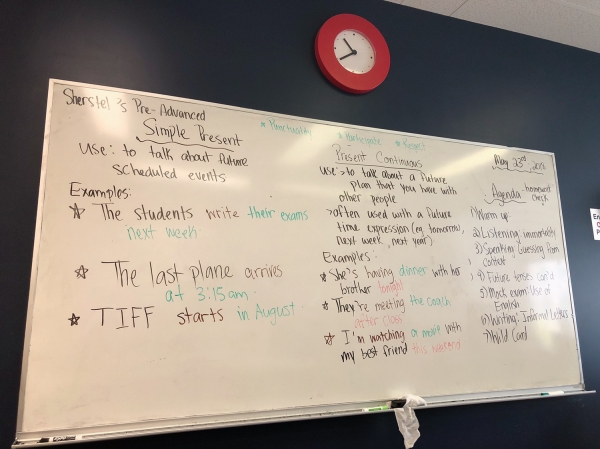 Sherstel's Pre-Advanced
* Punctuality * Participate * Respect
Simple Present
Use: to talk about future
scheduled events
Examples:
☆ The students write their exams
next week
☆ The last plane arrives
at 3:15am
☆ TIFF starts in August
Present Continuous
use:> to talk about a future
plan that you have with
other people
>often used with a future
time expression (eg. tomorrow,
next week, next year)
Examples:
☆ She's having dinner with her
brother tonight
☆ They're meeting the coach
after class
☆ I'm watching a movie with
my best friend this weekend
May 23rd
Agenda homework
check
1) Warm up
2) Listening: immortality
3) Speaking: Guessing from
Context
4) Future tenses con't
5) Mock exam: Use of
English
6) Writing: Informal Letters
7) Wild Card